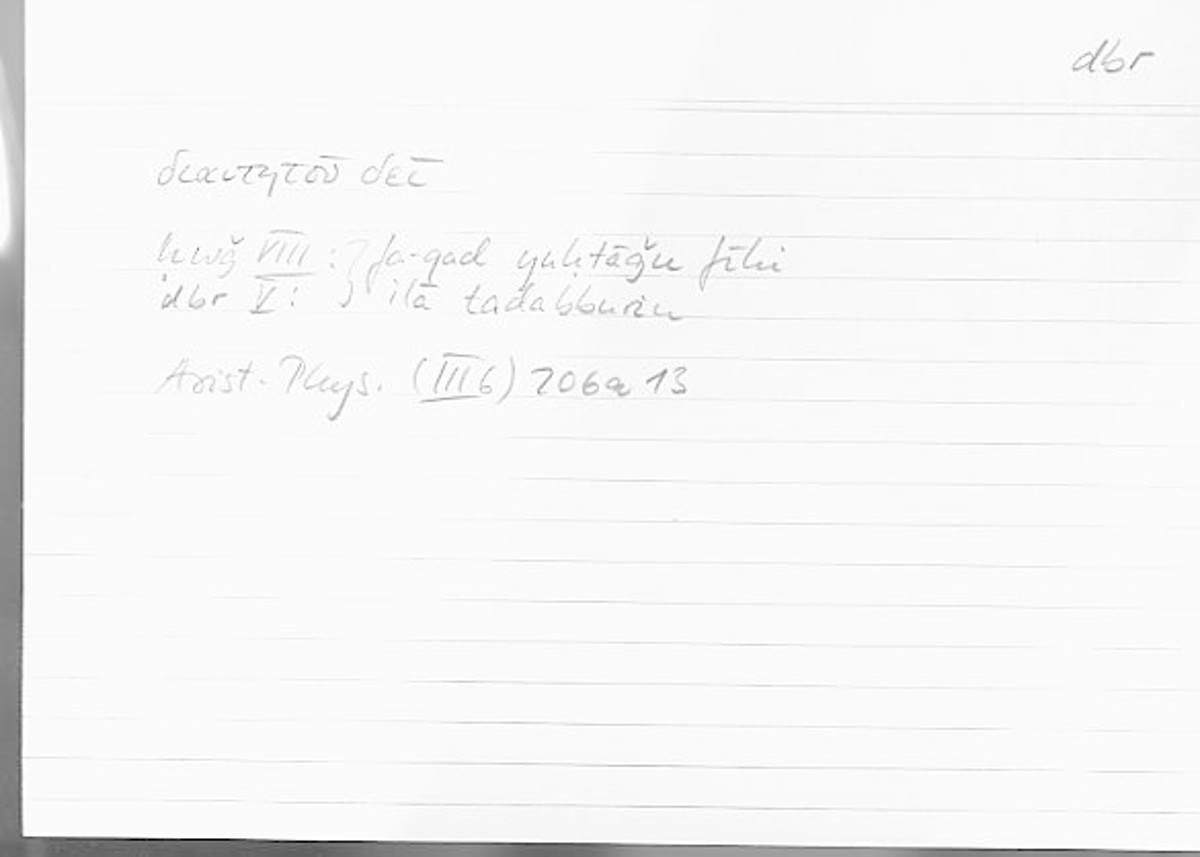 dbr
διαιτητοῦ δεῖ
ḥwǧ VIII : } fa-qad yuḥtāǧu fīhi
dbr V : } ilā tadabburin
Arist. Phys. (III 6) 206a 13